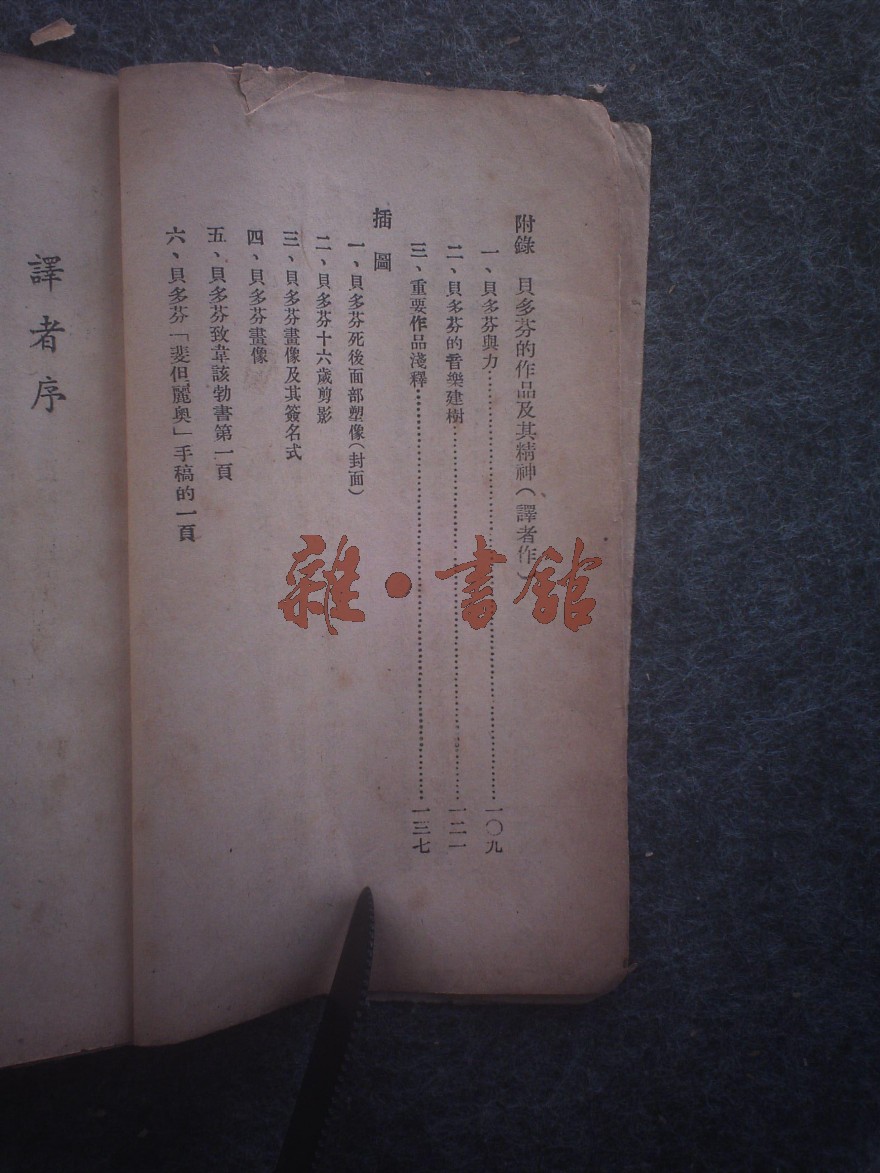 附錄　貝多芬的作品及其精神（譯者作）
一、貝多芬與力⋯⋯⋯⋯⋯⋯⋯⋯⋯⋯一〇九
二、貝多芬的音樂建樹⋯⋯⋯⋯⋯⋯⋯⋯一二一
三、重要作品淺釋⋯⋯⋯⋯⋯⋯⋯⋯⋯一三七
插圖
一、貝多芬死後面部塑像（封面）
二、貝多芬十六歲剪影
三、貝多芬畫像及其簽名式
四、貝多芬畫像
五、貝多芬致韋該勃書第一頁
六、貝多芬「斐但麗奧」手稿的一頁
譯者序
雜·書館